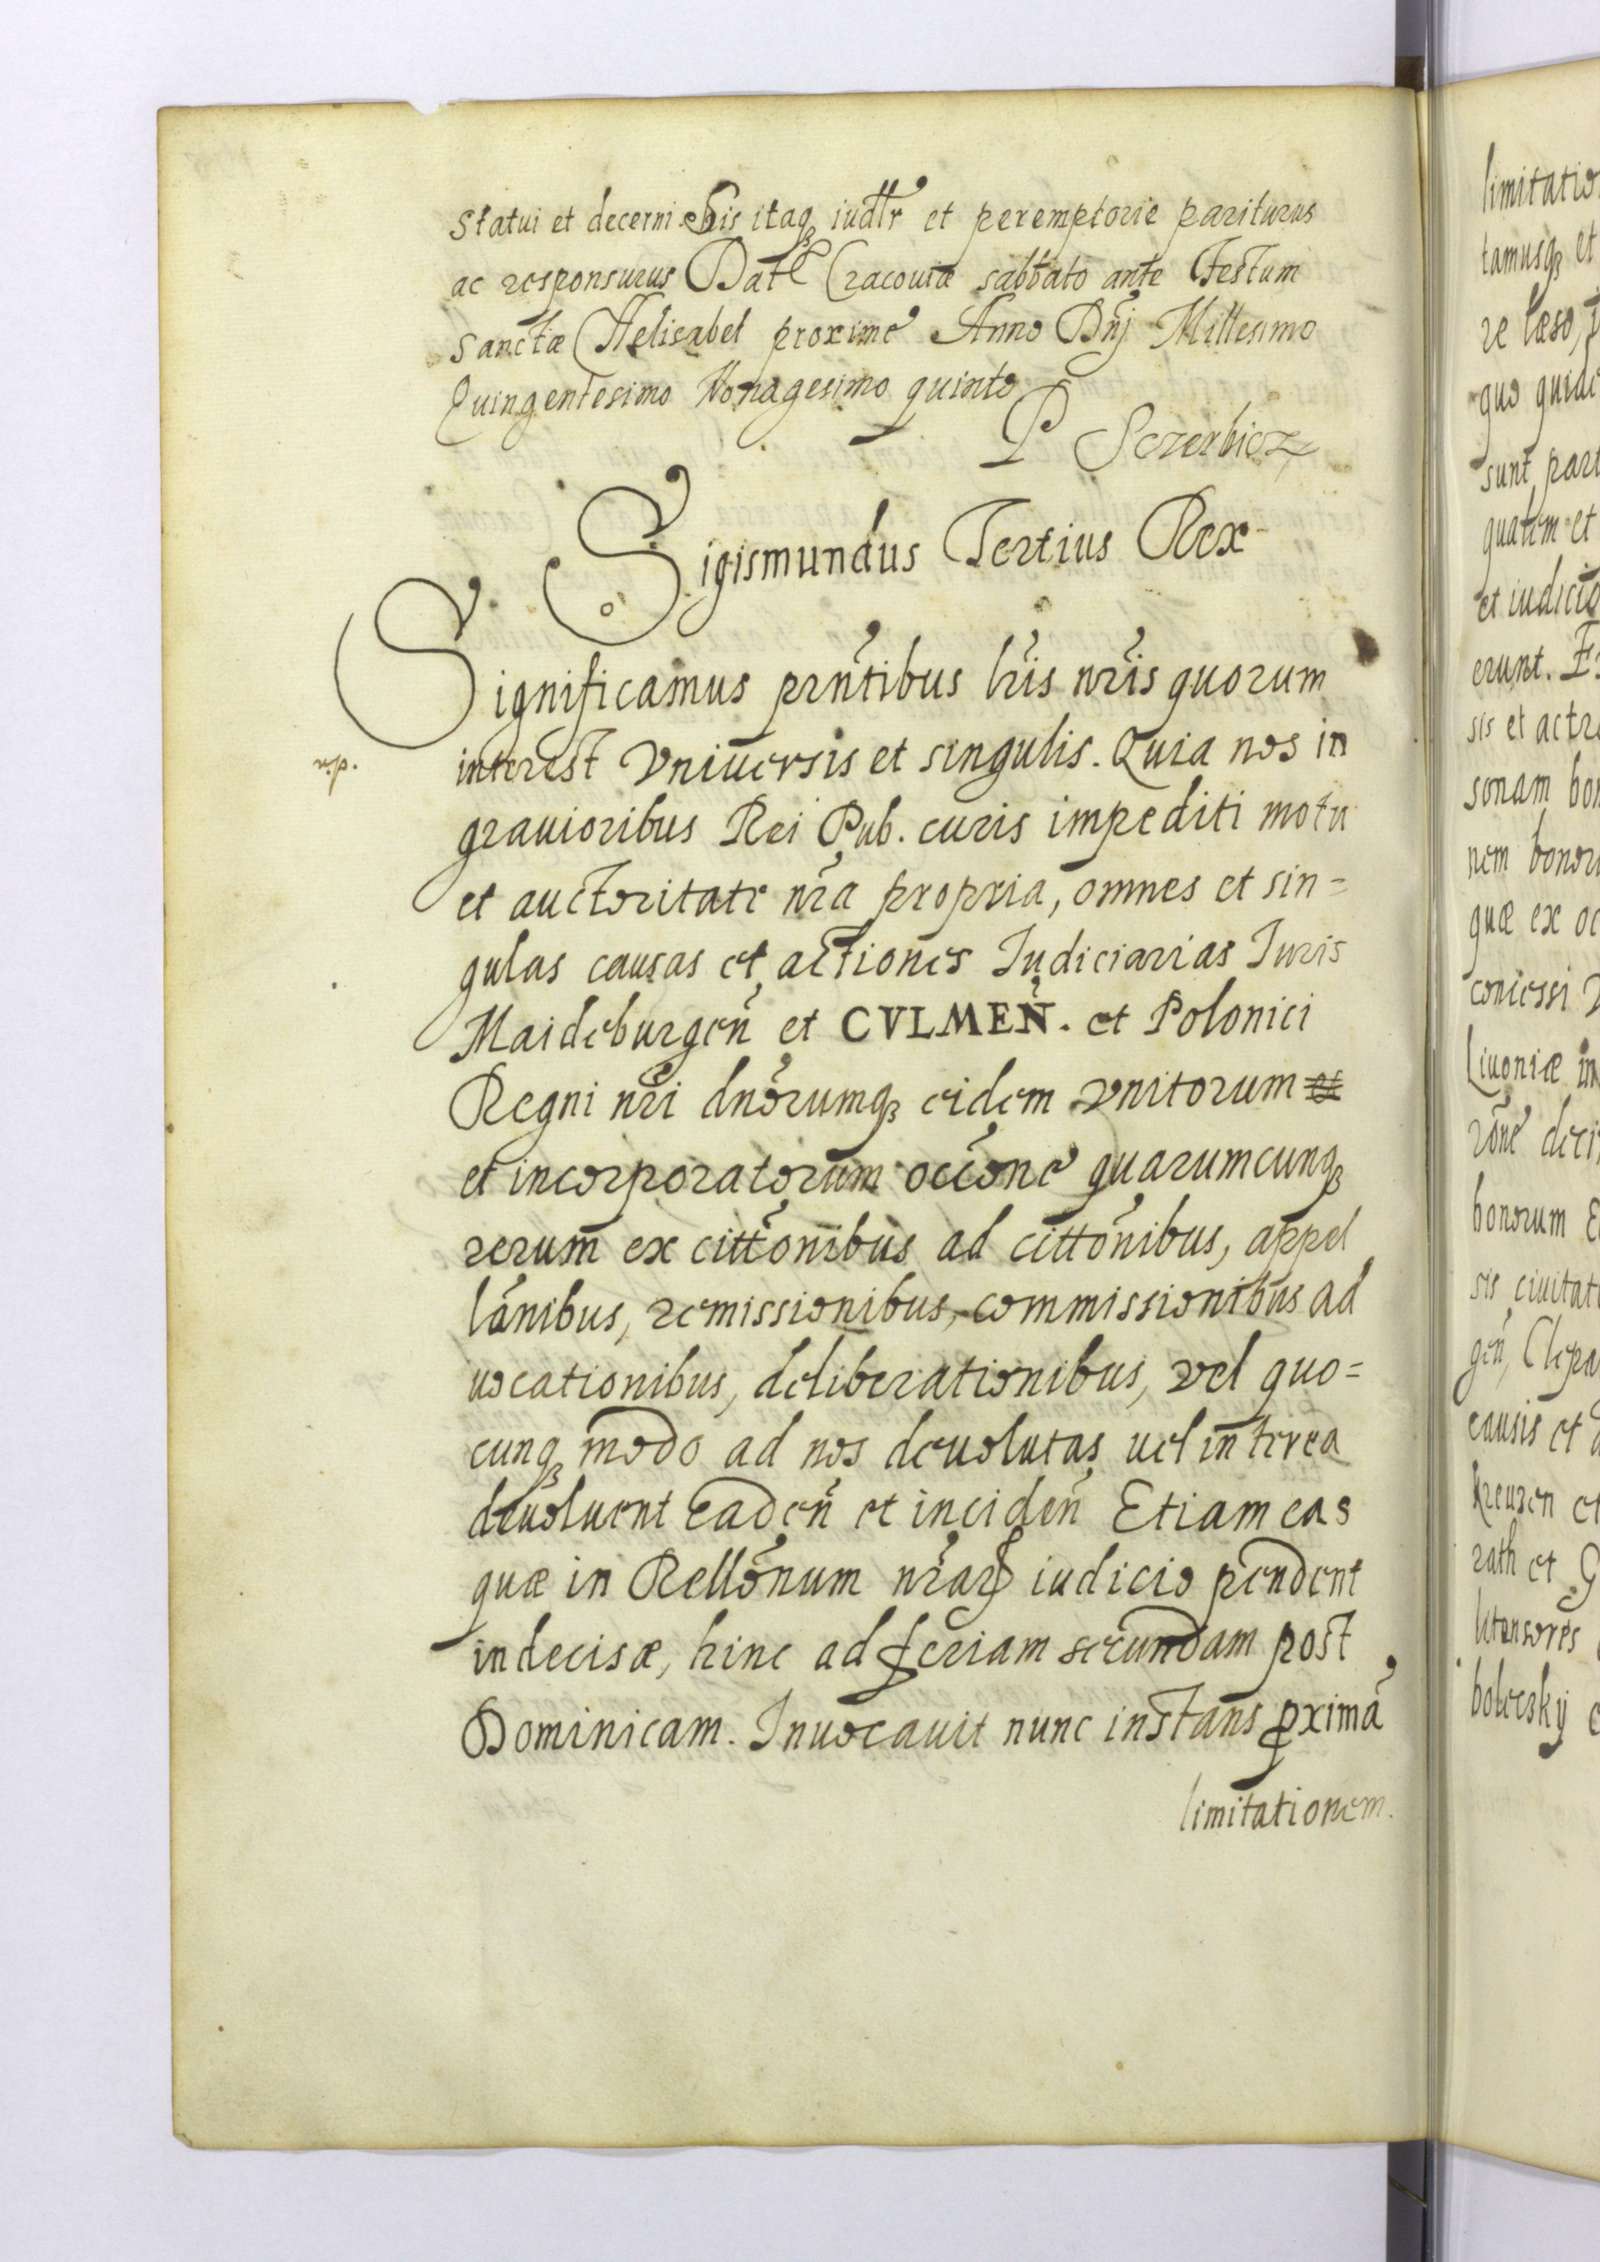 statui et decerni. Sis itaq iudlr et peremptorie pariturus
ac responsurus Dat Cracouiæ sabbato ante Festum
Sanctæ Helisabet proxime Anno Dnj Millesimo
Quingentesimo Nonagesimo quinto
P Sczerbicz
Sigismundus Tertius Rex
Significamus prntibus lris nris quorum
interest vniuersis et singulis. Quia nos in
grauioribus Rei Pub. curis impediti motu
et auctoritate nra propria, omnes et sin=
gulas causas et actiones Iudiciarias Iuris
Maideburgen et CVLMEN. et Polonici
Regni nri dnorumq eidem vnitorum
et incorporatorum occone quarumcunq
rerum ex cittonibus ad cittonibus, appel
lanibus, remissionibus, commissionibus ad
uocationibus, deliberationibus, vel quo=
cunq modo ad nos deuolutas uel interea
deuoluent caden et inciden Etiam eas
quæ in Rellonum nrar iudicio pendent
indecisæ, hinc ad feriam secundam post
Dominicam. Inuocauit nunc instans pximā
limitationem.
limitatio
tamusq et
re læso,
quo quide
sunt part
quatem et
et iudicio
erunt.
sis et actr
sonam bon
nem bonoru
quæ ex oc
coniessi
Liuoniæ in
rone deci
bonorum
sis ciuitat
gen, Clepa
causis et
kreuzen et
rath et